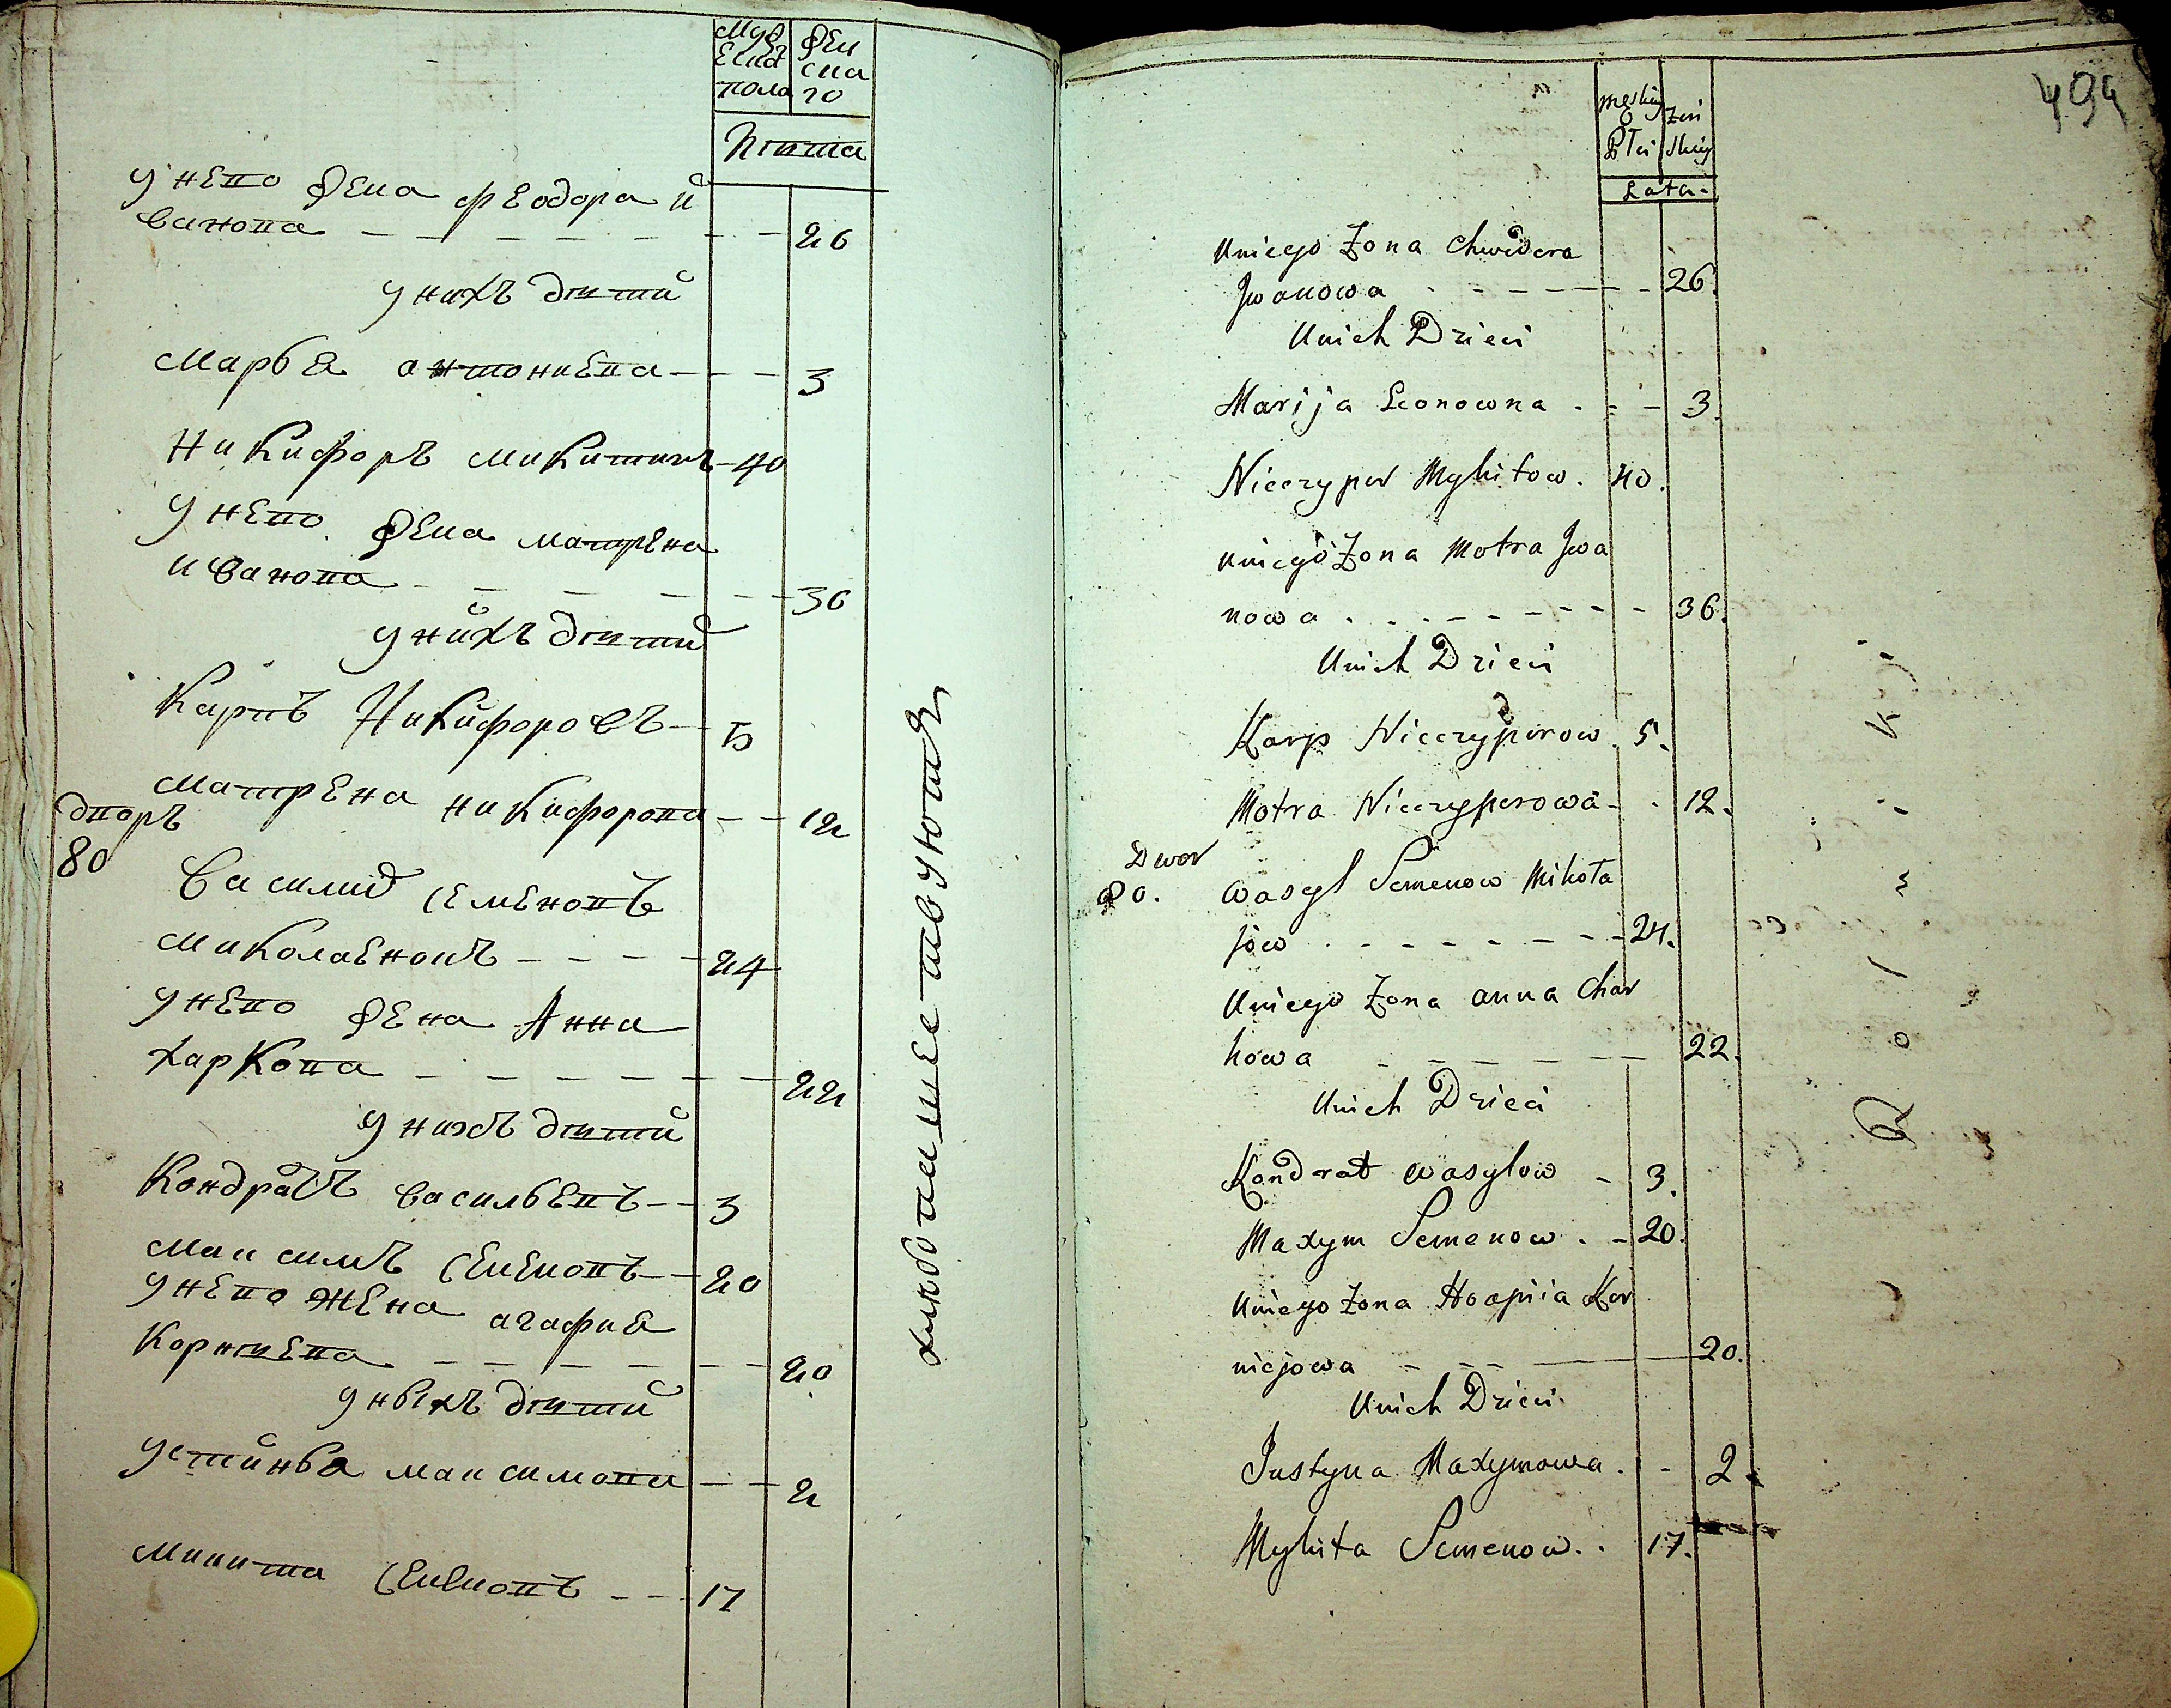 Муж
еска
пола
жен
ска
го
лѣта
у нево жена феодора и
ванова — — — — — 26
у нихъ дѣтй
Марья антоннева — — 3
Никифоръ микитинъ — 40
у нево жена матрена
иванова — — — — 36
у нихъ дѣтий
Карпъ Никифоровъ — 5
матрена никифорова — — 12
дворъ
80
Василий семеновъ
миколаеновъ — — — — 24
у нево жена Анна
харкова — — — — — 22
у нихъ дѣтий
Кондратъ васильевъ — — 3
максимъ семеновъ — — 20
у нево жена агафия
Корнѣева — — — — — 20
у ныхъ дѣтий
устинья максимова — — 2
микита семеновъ — — 17
494
męskiey
płci
żeń
skiey
Lata
U niego Żona Chwedora
Jwanowa - - - - - 26.
U nich Dzieci
Marija Leonowna . - - 3.
Niczypor Mykitow . 40.
U niego Żona Motra Jwa
nowa . . . - - - - - 36.
U nich Dzieci
Karp Niczyporow . 5.
Motra Niczyporowa - . 12.
Dwor
80.
Wasyl Semenow Mikoła
jów . - - - - - - 24.
U niego Żona anna Char
kowa - - - - - 22.
U nich Dzieci
Kondrat wasylow - 3.
Maxym Semenow . - 20.
U niego Żona Hoapija Kor
niejowa - - - — 20.
U nich Dzieci
Justyna Maxymowa . - 2.
Mykita Semenow . . 17.